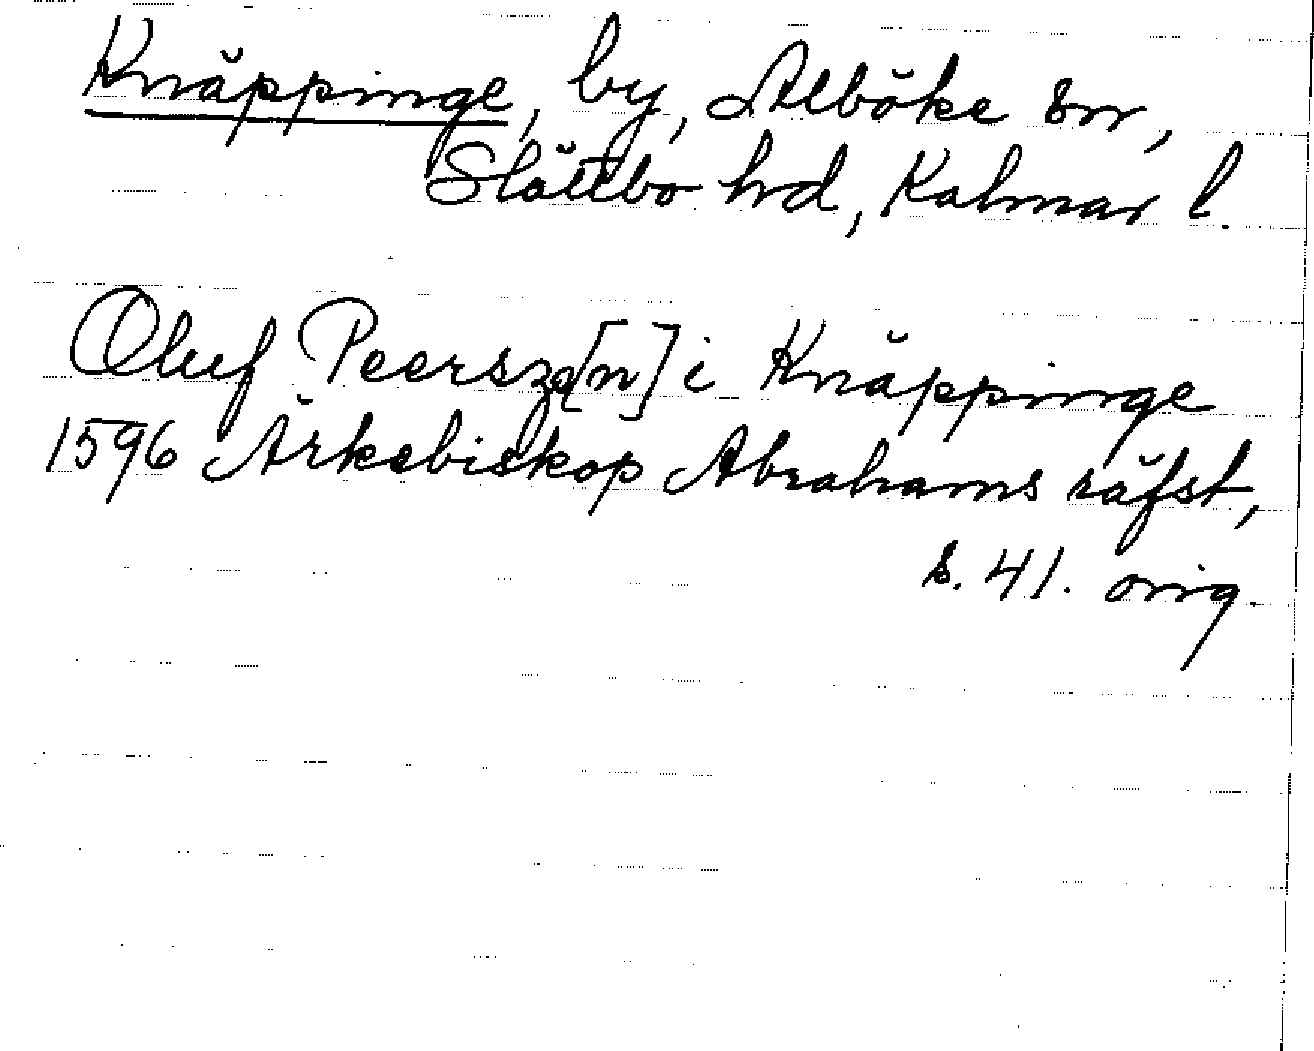 Knäppinge, by, Alböke sn,
Slättbo hrd, Kalmar l.
Oluf Peersze[n] i Knäppinge
1596 Ärkebiskop Abrahams räfst,
s. 41. orig.